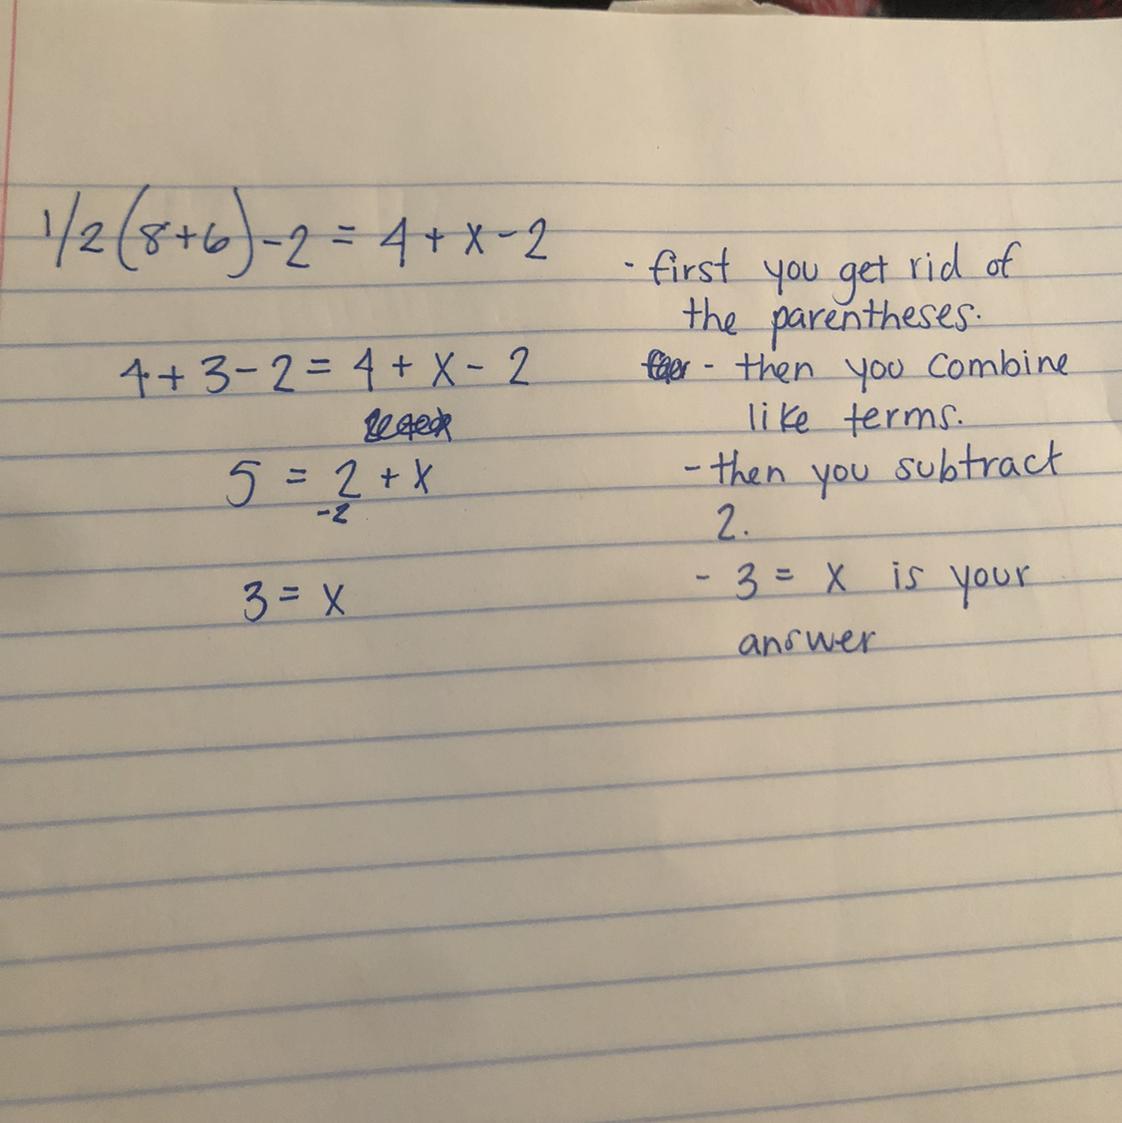 1/2(8+6)-2 = 4 + x - 2
4 + 3 - 2 = 4 + x - 2
5 = 2 + x
-2
3 = x
- first you get rid of
the parentheses.
- then you combine
like terms.
- then you subtract
2.
- 3 = x is your
answer